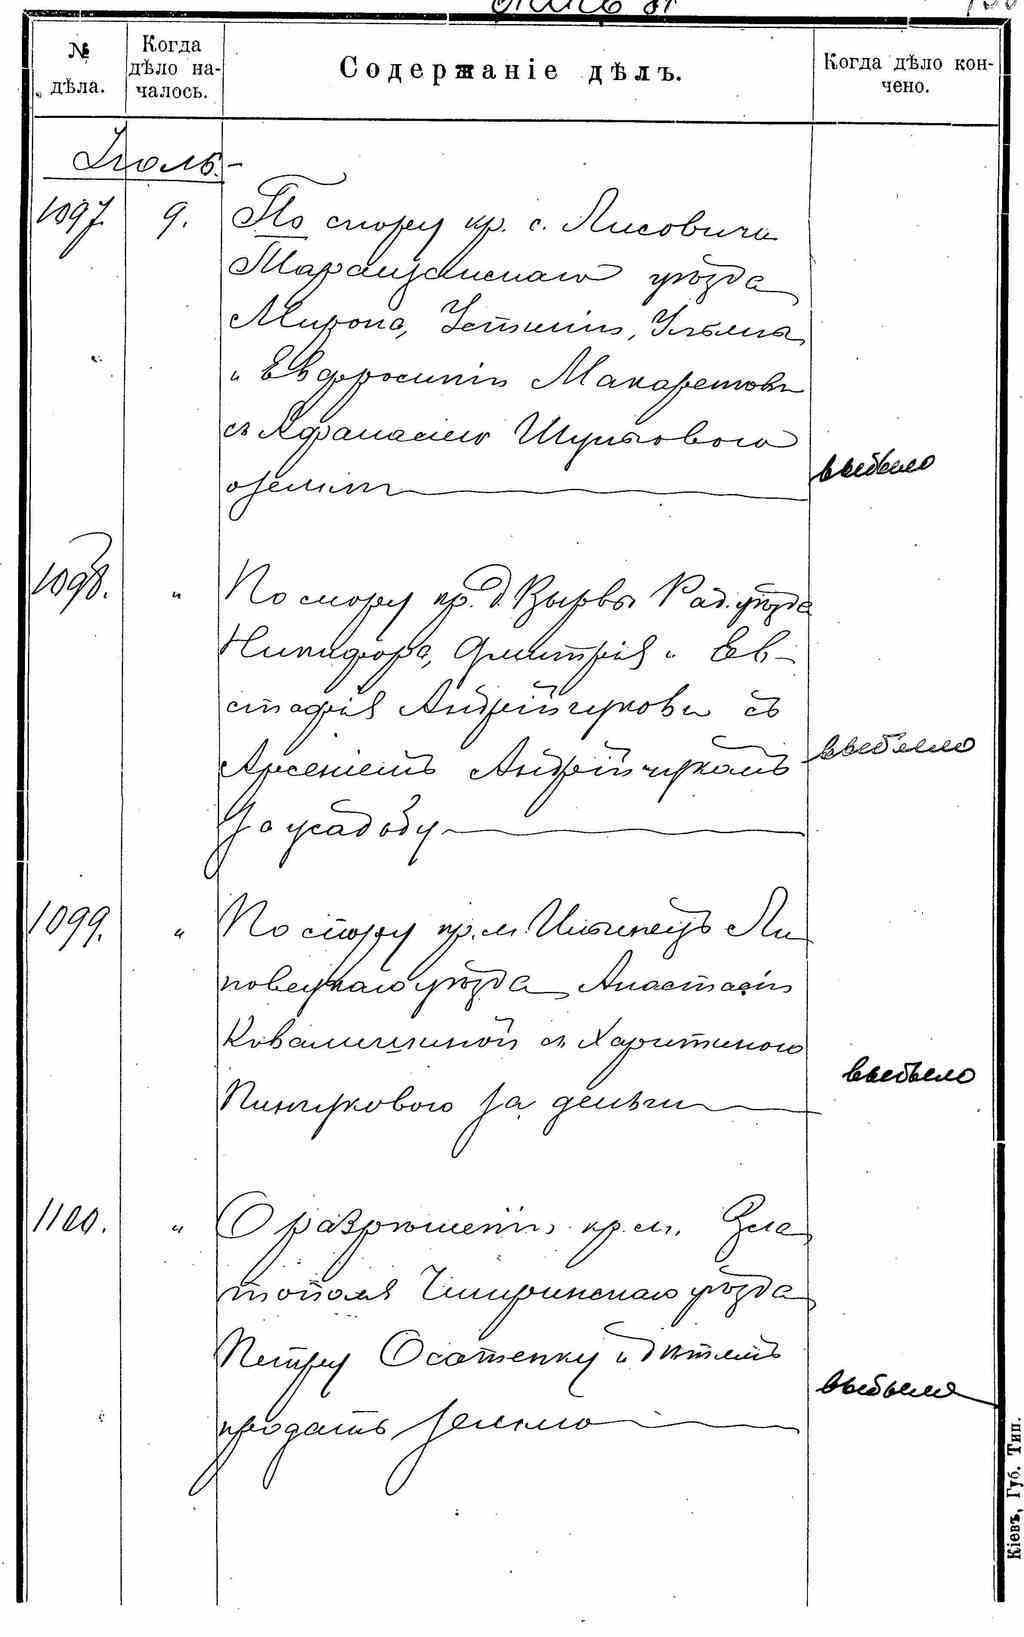 Опись
№ дѣла.
Когда дѣло на-
чалось.
Содержаніе дѣлъ.
Когда дѣло кон-
чено.
Іюль.
1097.
9.
По спору кр. с. Лисовичи
Таращанскаго уѣзда
Мирона, Устиніи, Ульяны
и Евфросиніи Макаретовы
съ Афанасіею Шульговою
о землѣ
выбыло
1098.
"
По спору кр. д. Вырвы Рад. уѣзда
Никифора, Дмитрія и Ев-
стафія Андрійчуковы съ
Арсеніемъ Андрійчукомъ
за усадьбу
выбыло
1099.
"
По спору кр. м. Ильинецъ Ли
повецкаго уѣзда Анастасіи
Ковалишиной съ Харитиною
Пинчуковою за деньги
выбыло
1100.
"
О разрѣшеніи кр. м. Зла
тополя Чигиринскаго уѣзда
Петру Осатенку и дѣтямъ
продать землю
выбыло
Кіевъ, Губ. Тип.